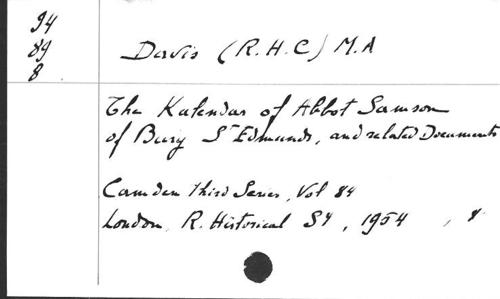 94
89
8
Davis (R.H.C) M.A
The Kalendar of Abbot Samson
of Bury St Edmunds, and related Documents
Camden third Series, Vol 84
London, R. Historical Sy, 1954, 8